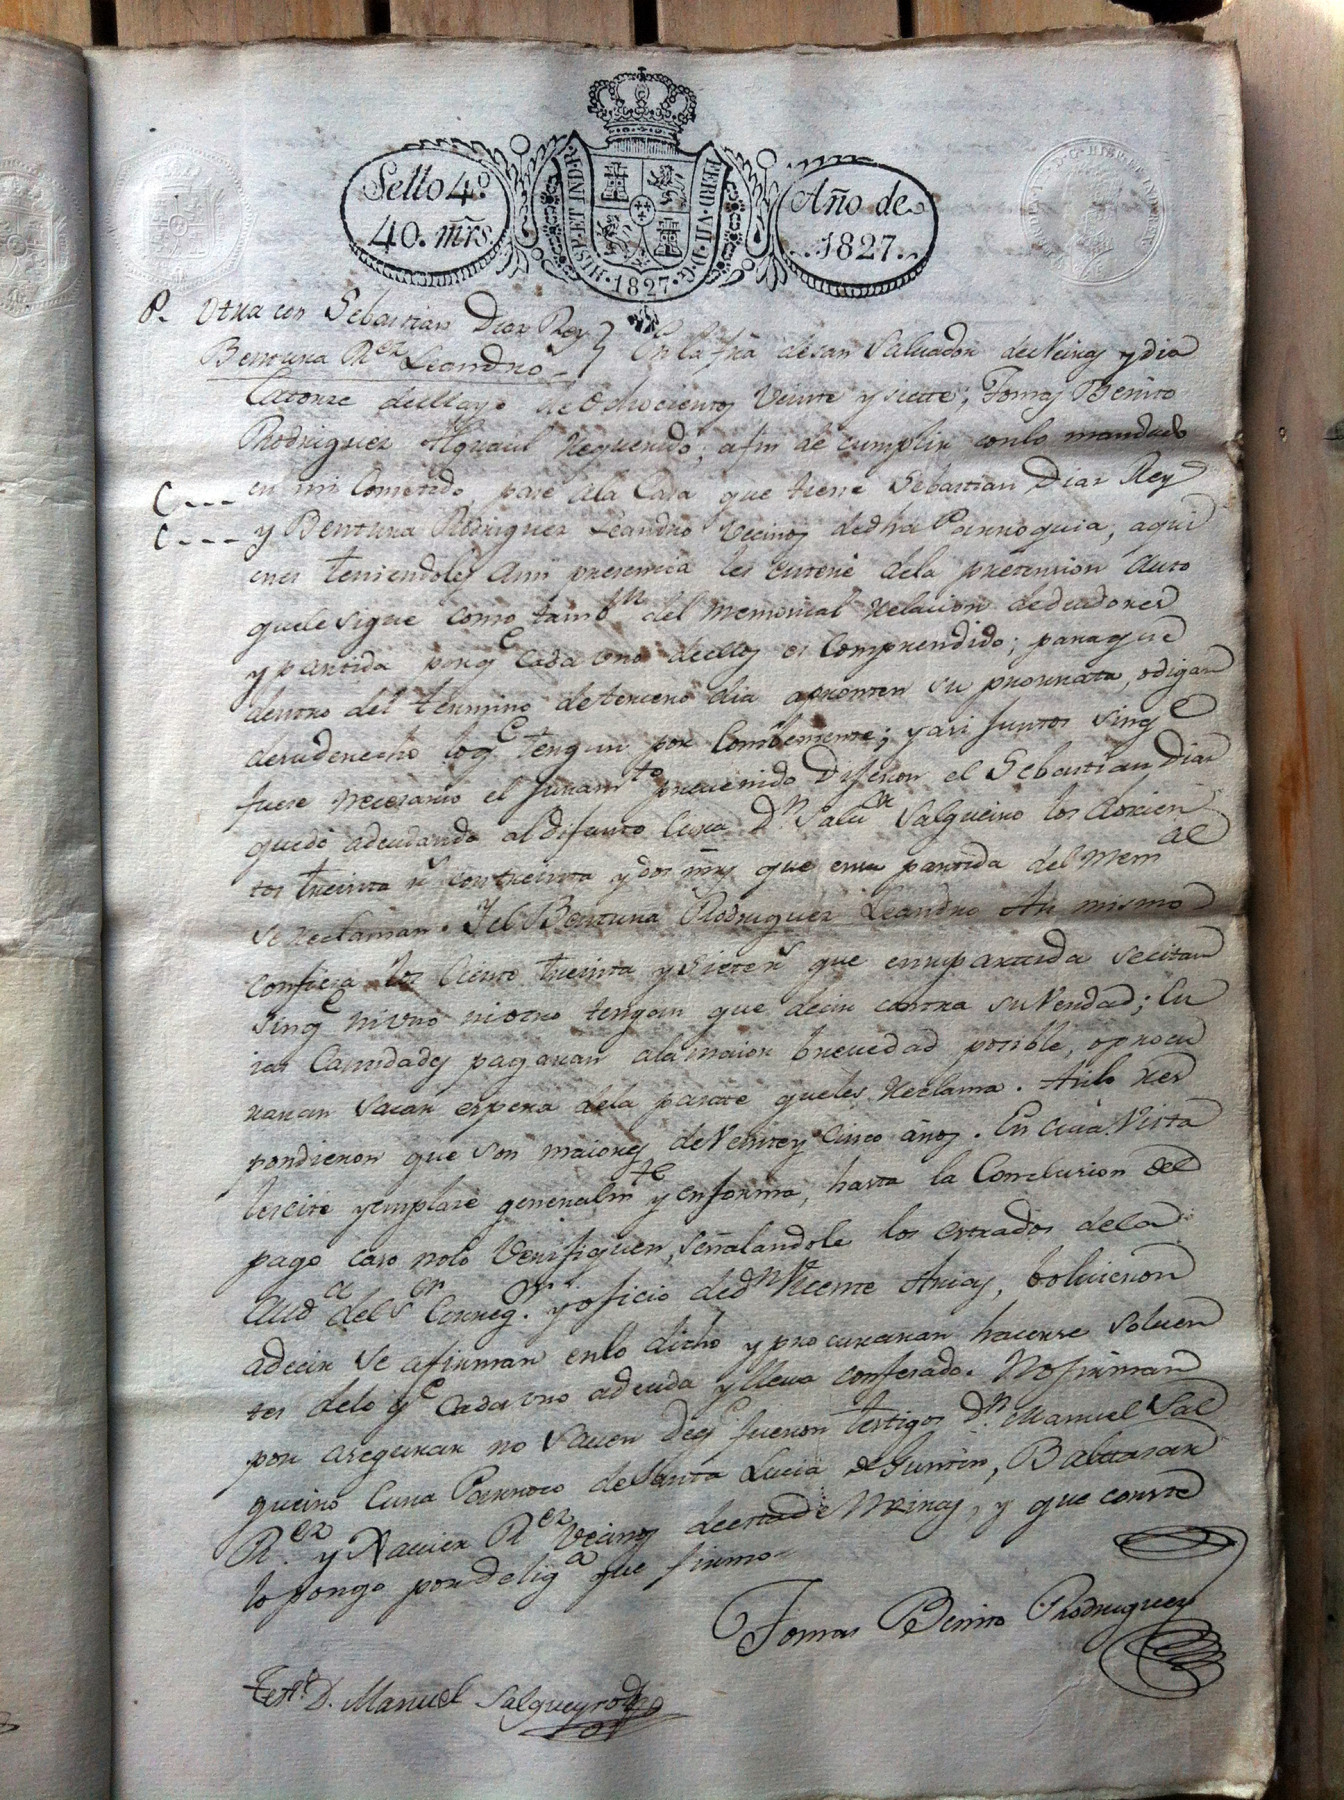 Sello 4.º
40. mrs.
HISP. ET IND. R.
FERD. VII. D. G.
1827
Año de
1827.
P. Otra con Sebastian Diaz Rey
Bentura R.ez Leandro
En la fra de san Salvador de Neiraȷ y dia
Catorze de Mayo de Ochocientos Veinte y siette; Tomas Benito
Rodriguez Alguacil Requerido; afin de cumplir conlo mandado
en mi Cometido, pase ala Casa que tiene Sebastian Diaz Rey
y Bentura Rodriguez Leandro Vecinos dedha Parroquia, aqui
enes teniendoles Ami presencia les enteré dela pretension Auto
quele sigue como tambn del memorial Relacion dedeudores
y partida porqe Cada uno deellos es Comprendido; paraque
dentro del termino detercero dia apronten su prorrata, odigan
desuderecho loqe tengan por Combeniente; y asi Juntos sinqe
fuese necesario el Juramto prevenido Dijeron el Sebastian Diaz
quedó adeudando al difunto Cura Dn Salvr Salgueiro los docien
tos treinta rs contreinta y dos mrs que ensu partida del Memal
se reclaman. Y el Bentura Rodriguez Leandro Asi mismo
confiesa los Ciento treinta y siete rs que ensupartida secitan
sinqe niuno niotro tengan que decir contra suVerdad; Cu
ias Cantidades pagaran alamaior brevedad posible, oprocu
raran sacar espera dela parte queles Reclama. Asilo res
pondieron que son maiores deVeinte y Cinco años. En cuia Vista
lescite yemplaze generalmte y enforma, hasta la Conclusion del
pago caso nolo Verifiquen, señalandole los estrados dela
Auda del Sr Correg.or y oficio deDn Vicente Arias, bolvieron
adecir se afirman enlo dicho y procuraran hacerse solven
tes delo qe Cada uno adeuda y lleva confesado. Nofirman
por asegurar no saven deqe fueron testigos Dn Manuel Sal
gueiro Cura Parroco deSanta Lucia de Guntin, Baltasar
R.ez y Xavier R.ez Vecinos deesta de Neiras, y que conste
lo pongo pordeliga que firmo
Tomas Benito Rodriguez
Test.º D. Manuel Salgueyro